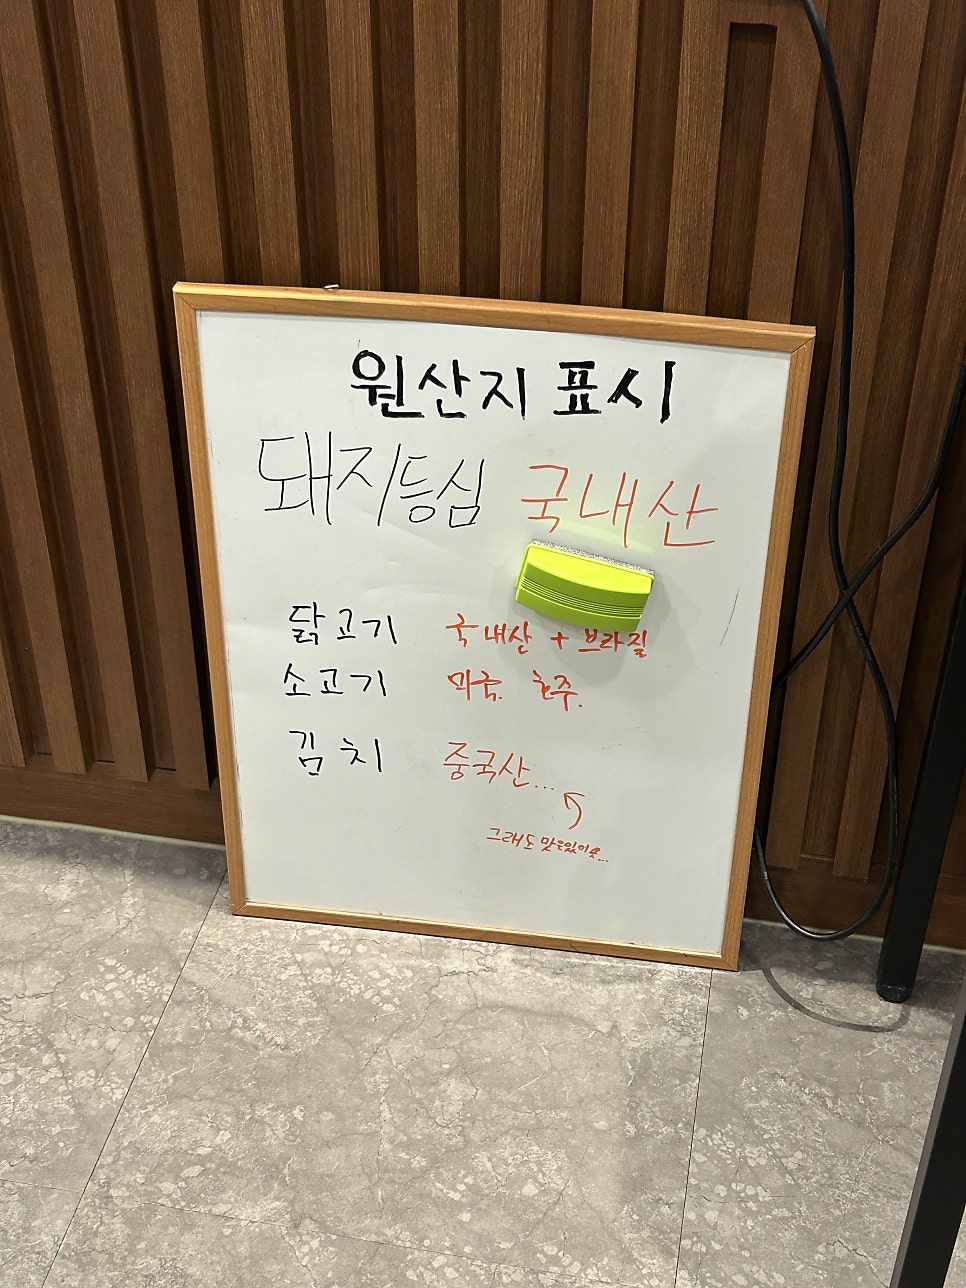 원산지 표시
돼지등심 국내산
닭고기 국내산 + 브라질
소고기 미국. 호주.
김치 중국산...
그래도